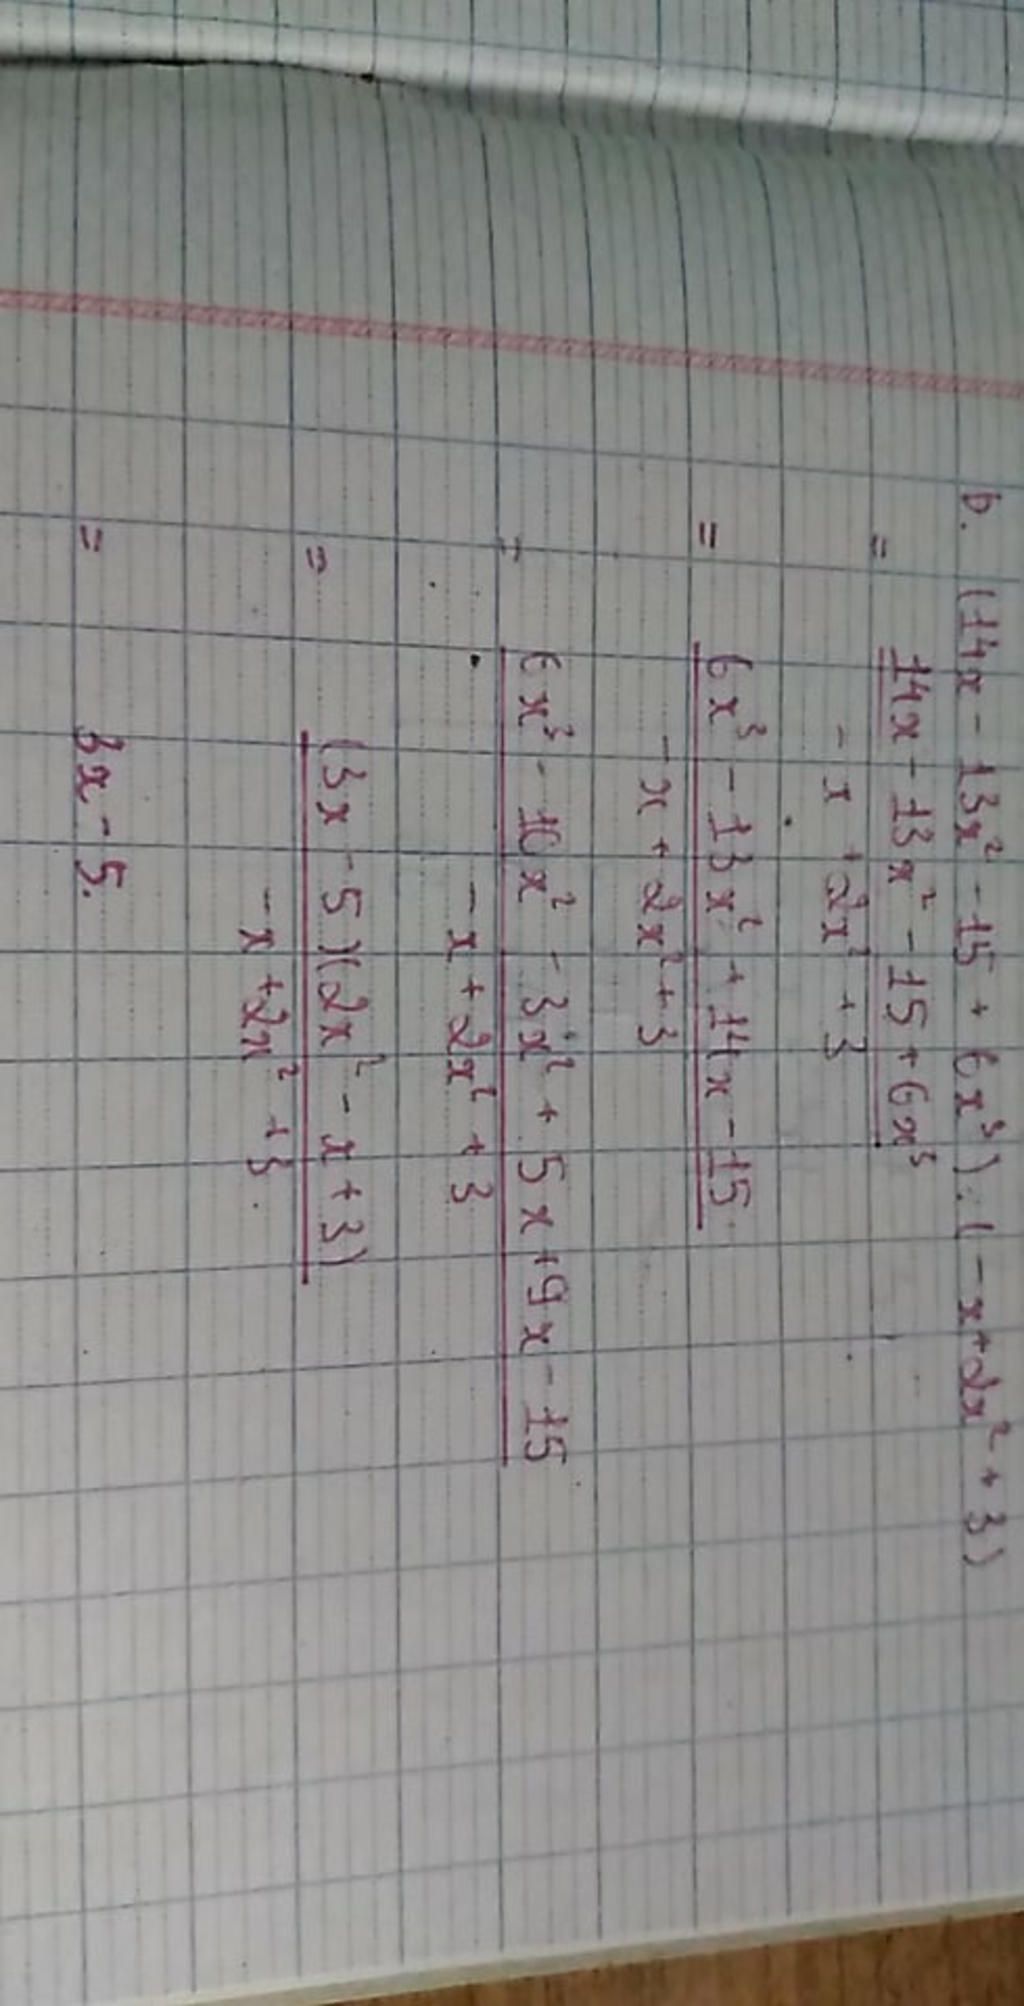 b. (14x - 13x² - 15 + 6x³) : (-x + 2x² + 3)
= 14x - 13x² - 15 + 6x³
- x + 2x² + 3
= 6x³ - 13x² + 14x - 15
- x + 2x² + 3
= 6x³ - 10x² - 3x² + 5x + 9x - 15
- x + 2x² + 3
= (3x - 5)(2x² - x + 3)
- x + 2x² + 3
= 3x - 5.